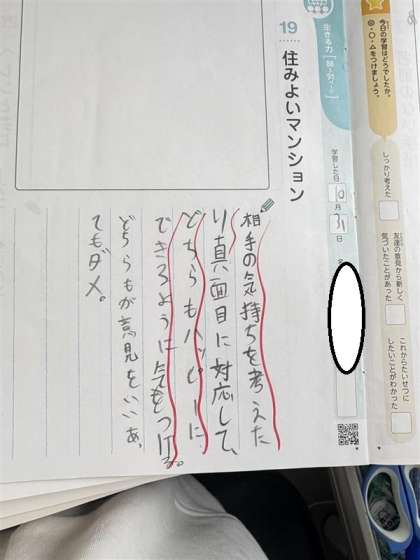 今日の学習はどうでしたか。
◎・○・△をつけましょう。
しっかり考えた
友達の意見から新しく
気づいたことがあった
これからたいせつに
したいことがわかった
生きる力
学習した日
10月31日
19
住みよいマンション
相手の気持ちを考えた
り真面目に対応して、
どちらもハッピーに
できるように
どちらもが意見をいいあ
てもダメ。